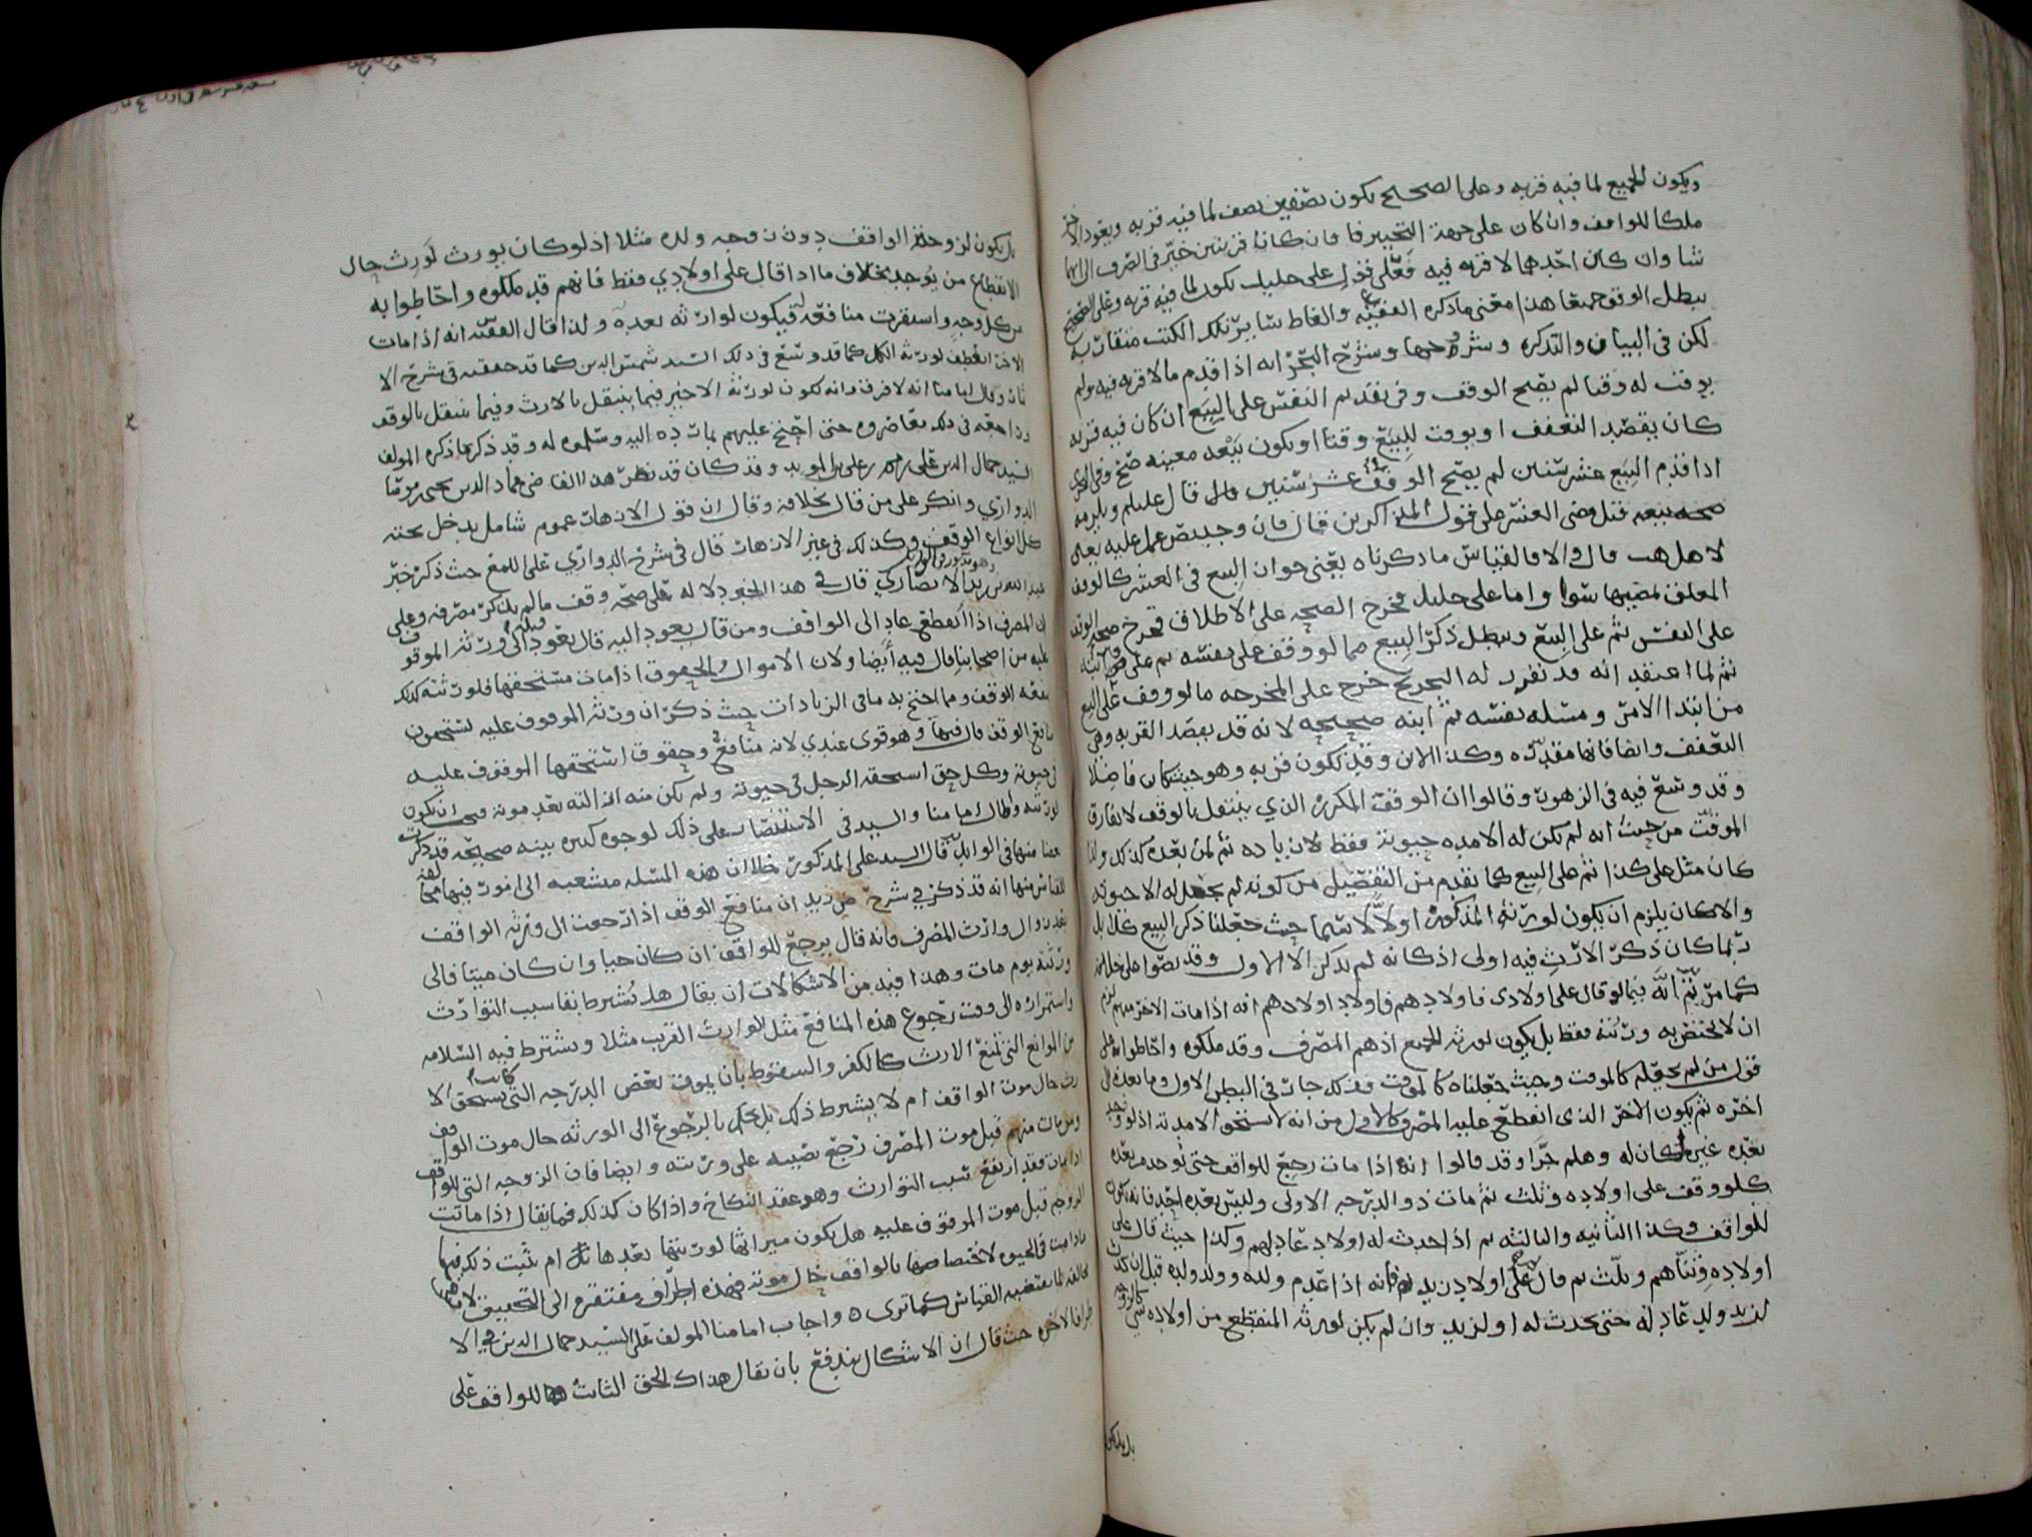 ويكون للجميع لما فيه قربه وعلى الصحيح يكون نصفين نصف لما فيه قربه ويعود الاخر
ملكا للواقف وان كان على جهة التخيير فان كانا قربتين خير في الصرف الى ايهما
شا وان كان احدهما لا قربه فيه فعلى قول علي خليل يكون لما فيه قربه وعلى الصحيح
يبطل الوقف جميعا هذا معنى ما ذكره الفقيه والفاظ سائر تلك الكتب متقاربه
لكن في البيان والتذكره وشروحها وشرح البحر انه اذا قدم ما لا قربه فيه ولم
يوقت له وقتا لم يصح الوقف وفي تقديم النفس على البيع ان كان فيه قربه
كان يقصد التعفف او يوقت للبيع وقتا او يكون بيعه معينه صح وفي
اذا قدم البيع عشر سنين لم يصح الوقف عشر سنين قال
صحه بيعه قبل مضي العشر على قول المذاكرين فان وجد نص عمل عليه يعني
لاهل المذهب قال والا فالقياس ما ذكرناه يعني جواز البيع في العشر كالوقف
المعلق بمضيها سوا واما على خليل فخرج الصحه على الاطلاق
على النفس ثم على البيع وببطل ذكر البيع مما لو وقف على نفسه ثم على
ثم لما اعتقد انه قد تقرر له التخريج خرج على المخرجه ما لو وقف على البيع
من ابتدا الامر ومسله نفسه ثم ابنه صحيحه لانه قد يقصد القربه وهي
التعفف وايضا فانها مقدره وكذا الابن وقد تكون قربه وهو حيث كان فاضلا
وقد وسع فيه في الزهور وقالوا ان الوقف المكرر الذي ينتقل بالوقف لا يفارق
الموقت من حيث انه لم يكن له الا مده حيوته فقط لا زياده ثم لمن بعده كذلك
كان مثل على كذا ثم على البيع كما تقدم من التفصيل من كونه لم يجعل له الا حيوته
والا كان يلزم ان يكون لورثه المذكور اولا لا سيما حيث جعلنا ذكر البيع
ربما كان ذكر الارث فيه اولى اذ كانه لم يذكر الا الاول وقد نصوا على خلافه
كما مر ثم انه فيما لو قال على اولادي فاولادهم فاولاد اولادهم انه اذا مات الاخر منهم لزم
ان لا يختص به ورثته فقط بل يكون لورثه الجميع اذ هم المصرف وقد ملكوه واحاطوا به على
قول من لم يجعله كالموقت وحيث جعلناه كالموقت فذلك جار في البطن الاول وما بعده الى
اخره ثم يكون الاخر الذي انقطع عليه المصرف كالاول من انه لا يستحق الا مدته اذ لو وجد
بعده غيره لكان له وهلم جرا وقد قالوا انه اذا مات رجع للواقف حتى يوجد من بعده
كلو وقف على اولاده وثلث ثم مات ذو الدرجه الاولى وليس بعده احد فانه يكون
للواقف وكذا الثانيه والثالثه ثم اذا حدث له اولاد عاد لهم وكذا حيث قال على
اولاده وثناهم وثلث ثم قال على اولاد زيد فانه اذا عدم ولده وولد ولده قبل ان يحدث
لزيد ولد عاد له حتى يحدث له او لزيد وان لم يكن لورثه المنقطع من اولاده شي
بل يكون
بل يكون لزوجة الواقف دون زوجه ولده مثلا اذ لو كان يورث لورث حال
الانقطاع من يوجد بخلاف ما اذا قال على اولادي فقط فانهم قد ملكوه واحاطوا به
من كل وجه واستقرت منافعه لهم فيكون لوارثه بعده ولذا قال الفقيه انه اذا مات
الاخر انعطف لورثه الكل كما قد وسع في ذلك السيد شمس الدين كما قد حققته في شرح الا
ثمار وقال امامنا انه لا فرق وانه يكون لورثه الاخير فيما ينتقل بالارث وفيما ينتقل بالوقف
وراجعه في ذلك معاصروه حتى احتج عليهم بما رده اليه وسلموه له وقد ذكر ما ذكره المولف
السيد جمال الدين علي بن المويد وقد كان قد نظر هذا القاضي عماد الدين يحيى
الدواري وانكر على من قال بخلافه وقال ان قول الازهار عموم شامل يدخل تحته
كل انواع الوقف وكذلك في غير الازهار قال في شرح الدواري على اللمع حيث ذكر خبر
عبد الله بن زيد الانصاري قال في هذا الخبر دلاله على صحه وقف ما لم يذكر مصرفه وعلى
ان المصرف اذا انقطع عاد الى الواقف ومن قال يعود اليه قال يعود الى ورثه الموقوف
عليه من اصحابنا قال فيه ايضا ولان الاموال والحقوق اذا مات مستحقها فلورثته كذلك
منفعه الوقف ومما احتج به ما في الزيادات حيث ذكر ان ورثه الموقوف عليه يستحقون
منافع الوقف قال فيها وهو قوي عندي لانه منافع وحقوق استحقها الموقوف عليه
في حيوته وكل حق استحقه الرجل في حيوته ولم يكن منه ازالته بعد موته وجب ان يكون
لورثته واطال امامنا والسيد في الانتصار على ذلك لوجوه كثيره بينه صحيحه قد ذكرت
بعضا منها في الوابل قال السيد علي المذكور خلا ان هذه المسله متشعبه الى امور فيها مخالفه
للقياس منها انه قد ذكر في شرح بن زيد ان منافع الوقف اذا رجعت الى ورثه الواقف
بعد زوال وارث المصرف فانه قال يرجع للواقف ان كان حيا وان كان ميتا فالى
ورثته يوم مات وهذا فيه من الاشكالات ان يقال هل يشترط بقا سبب التوارث
واستمراره الى وقت رجوع هذه المنافع مثل الوارث القريب مثلا ويشترط فيه السلامه
من الموانع التي تمنع الارث كالكفر والسقوط بان يموت بعض الدرجه التي كانت تستحق الا
رث حال موت الواقف ام لا يشترط ذلك بل يحكم بالرجوع الى الورثه حال موت الواقف
ومن مات منهم قبل موت المصرف رجع نصيبه على ورثته وايضا فان الزوجه التي للواقف
اذا مات فقد ارتفع سبب التوارث وهو عقد النكاح واذا كان كذلك فما يقال اذا ماتت
الزوجه قبل موت الموقوف عليه هل يكون ميراثها لورثتها بعدها ام يثبت ذلك فيها
ما دامت في الحيوه لاختصاصها بالواقف حال موته فهذه اطراف مفتقره الى التحقيق لانها
مخالفه لما يقتضيه القياس كما ترى ه واجاب امامنا المولف على السيد جمال الدين في الا
طراف الاخره حيث قال ان الاشكال يندفع بان يقال هذا كالحق الثابت للواقف على